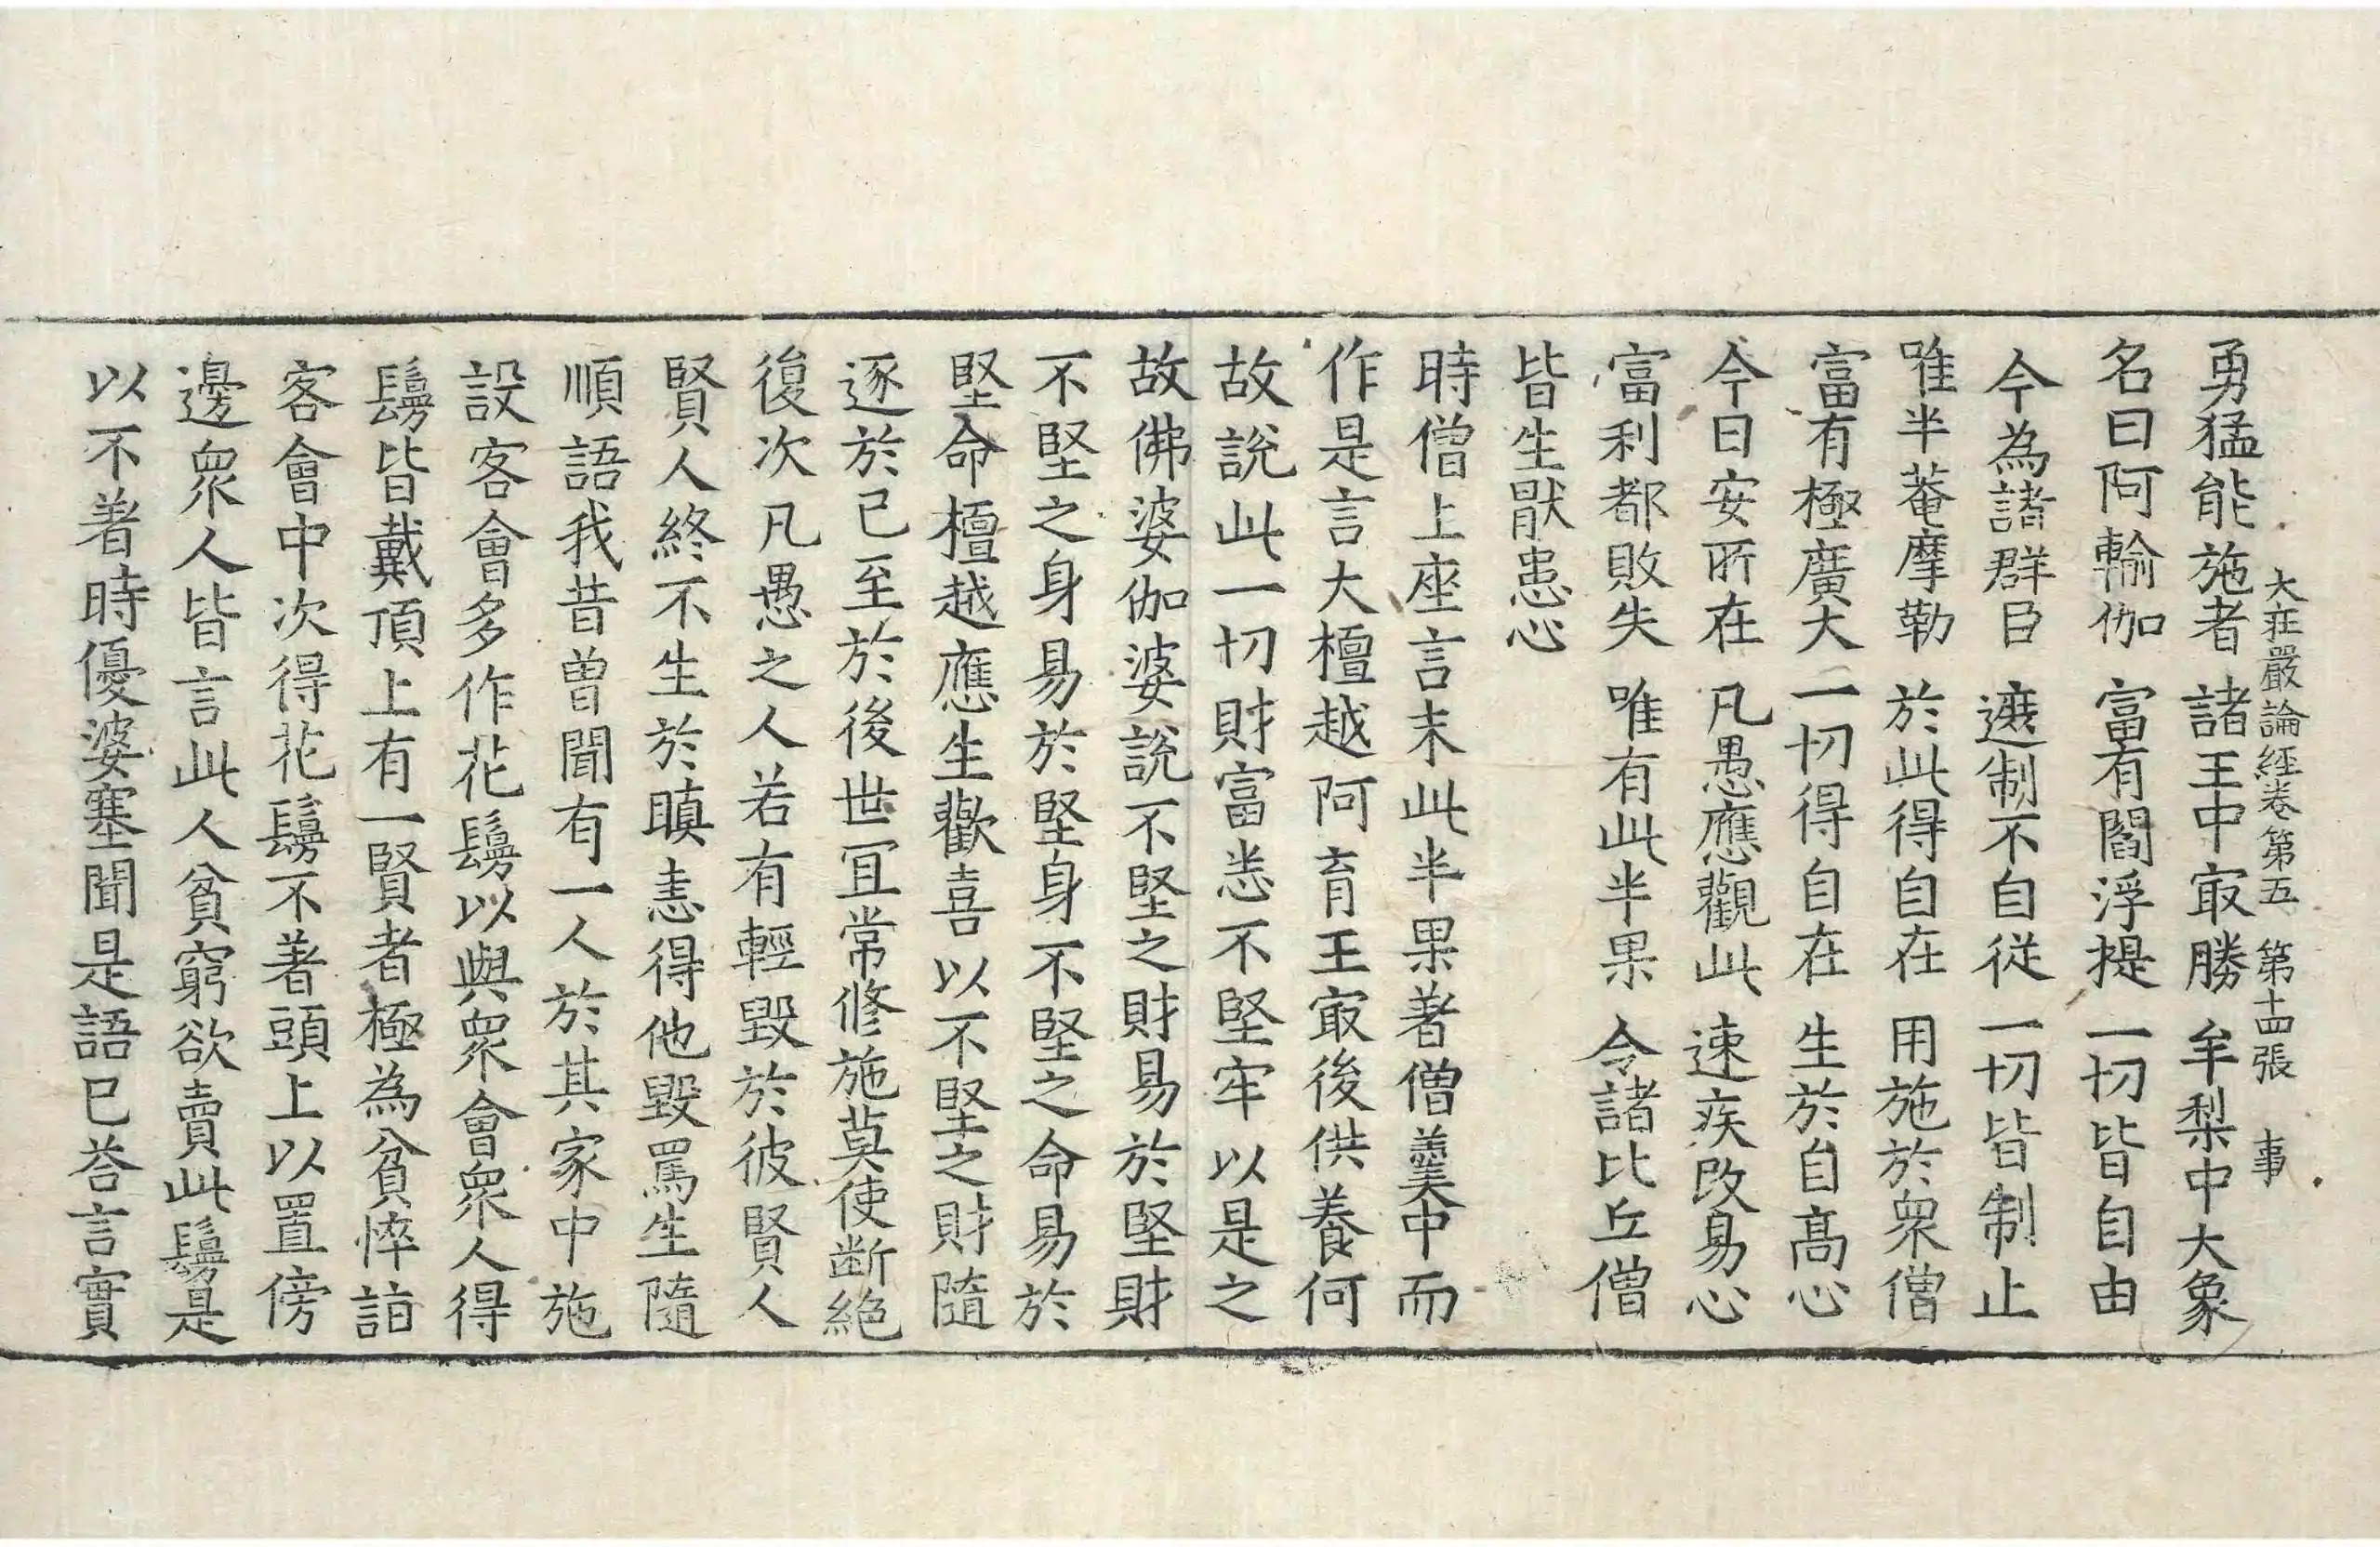 大莊嚴論經卷第五 第十四張 事
勇猛能施者 諸王中㝡勝 牟梨中大象
名曰阿輸伽 富有閻浮提 一切皆自由
今為諸群臣 遮制不自從 一切皆制止
唯半菴摩勒 於此得自在 用施於衆僧
富有極廣大 一切得自在 生於自髙心
今日安所在 凡愚應觀此 速疾改易心
富利都敗失 唯有此半果 令諸比丘僧
皆生猒患心
時僧上座言末此半果著僧羹中而
作是言大檀越阿育王㝡後供養何
故說此一切財富悉不堅牢以是之
故佛婆伽婆說不堅之財易於堅財
不堅之身易於堅身不堅之命易於
堅命檀越應生歡喜以不堅之財隨
逐於已至於後世冝常修施莫使断絕
復次凡愚之人若有輕毀於彼賢人
賢人終不生於瞋恚得他毀罵生隨
順語我昔曾聞有一人於其家中施
設客會多作花鬘以與衆會衆人得
鬘皆戴頂上有一賢者極為貧悴詣
客會中次得花鬘不著頭上以置傍
邊衆人皆言此人貧窮欲賣此鬘是
以不著時優婆塞聞是語已荅言實